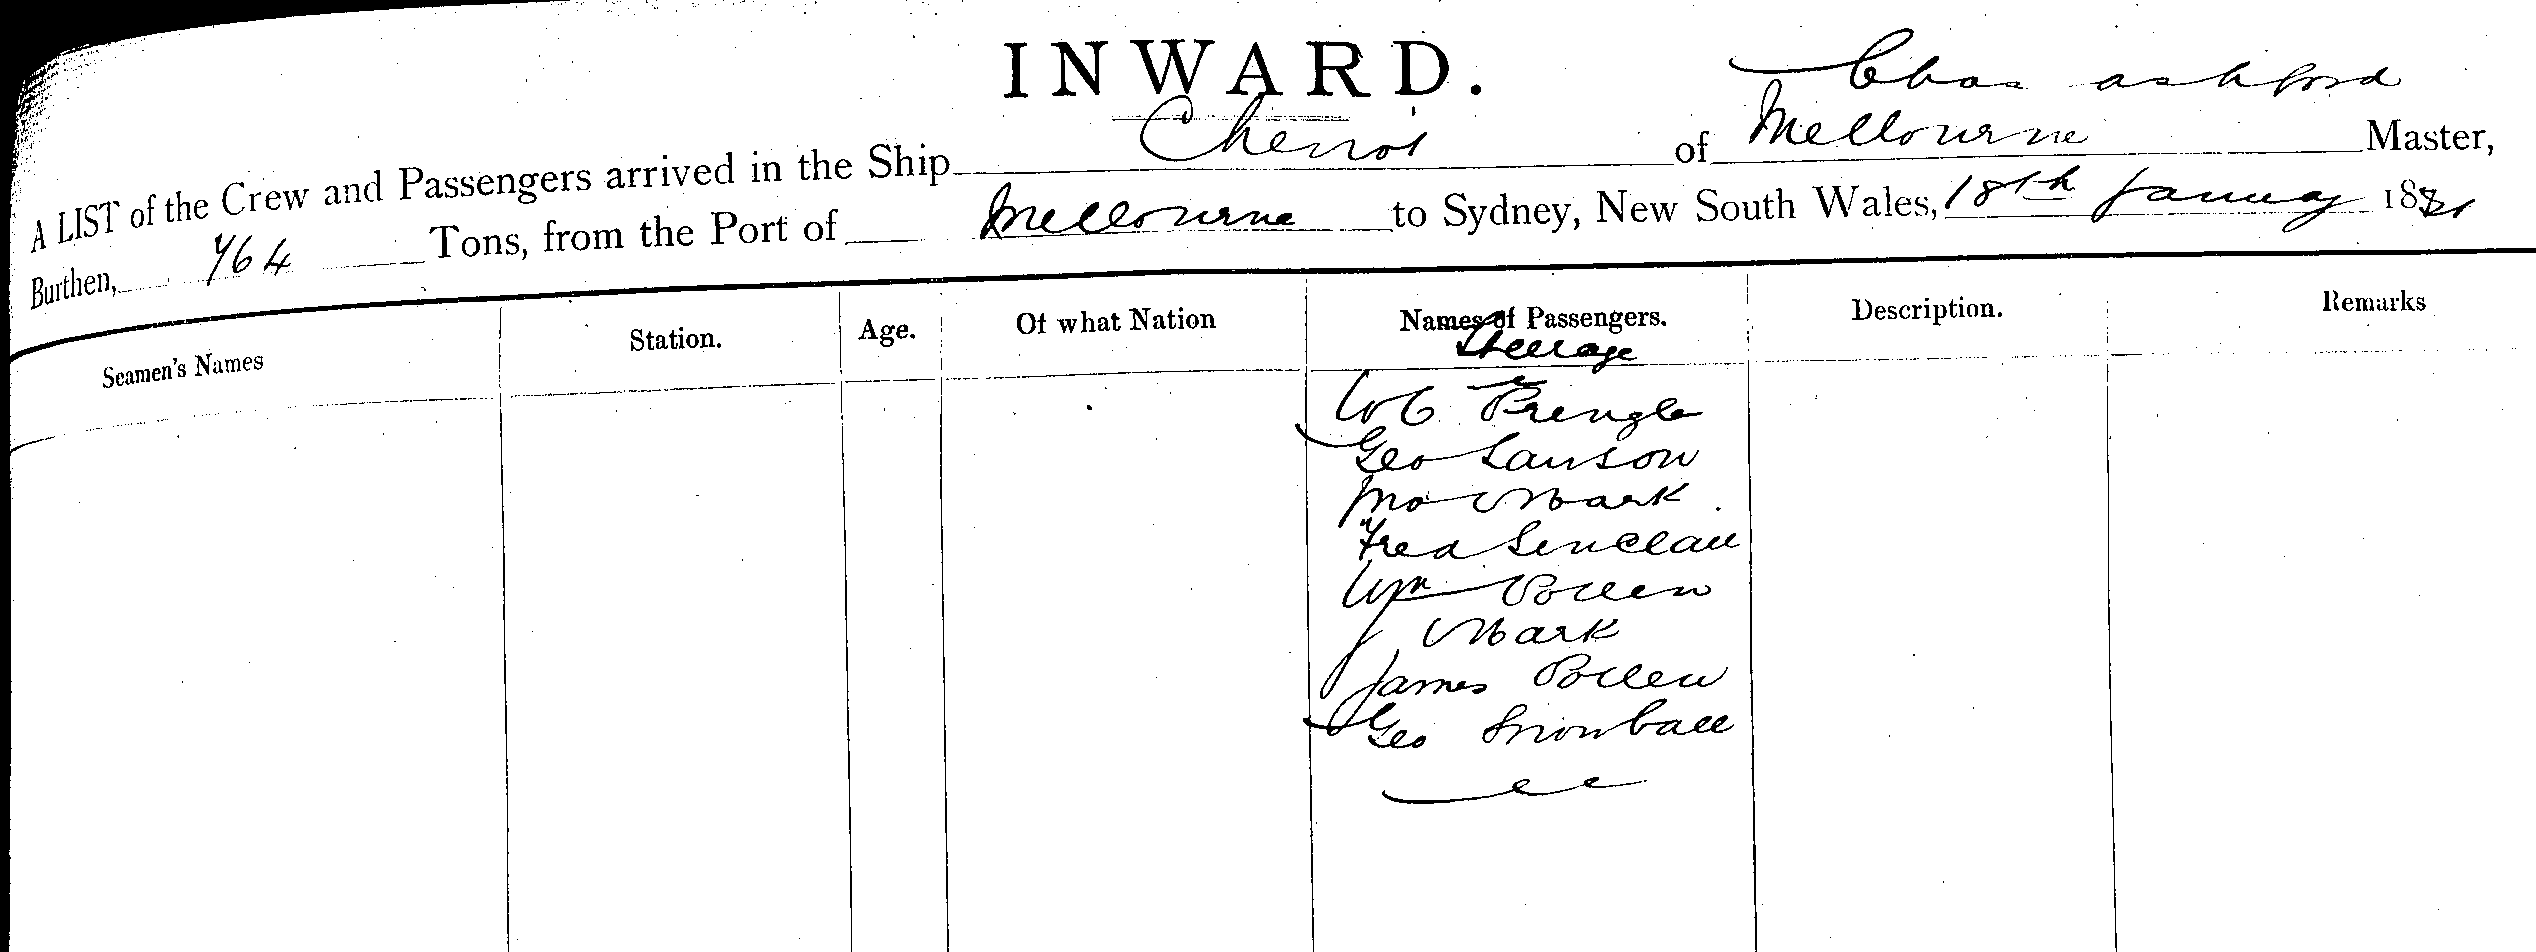 INWARD.
Chas ashford
A LIST of the Crew and Passengers arrived in the Ship Cheviot of Melbourne Master,
Burthen, 764 Tons, from the Port of Melbourne to Sydney, New South Wales, 18th January 1881
Seamen's Names Station. Age. Of what Nation Names of Passengers. Description. Remarks
Steerage
W C Pringle
Geo Lawson
Jno Mark
Fred Sinclair
Wm Pollen
J Mark
James Pollen
Geo Snowball